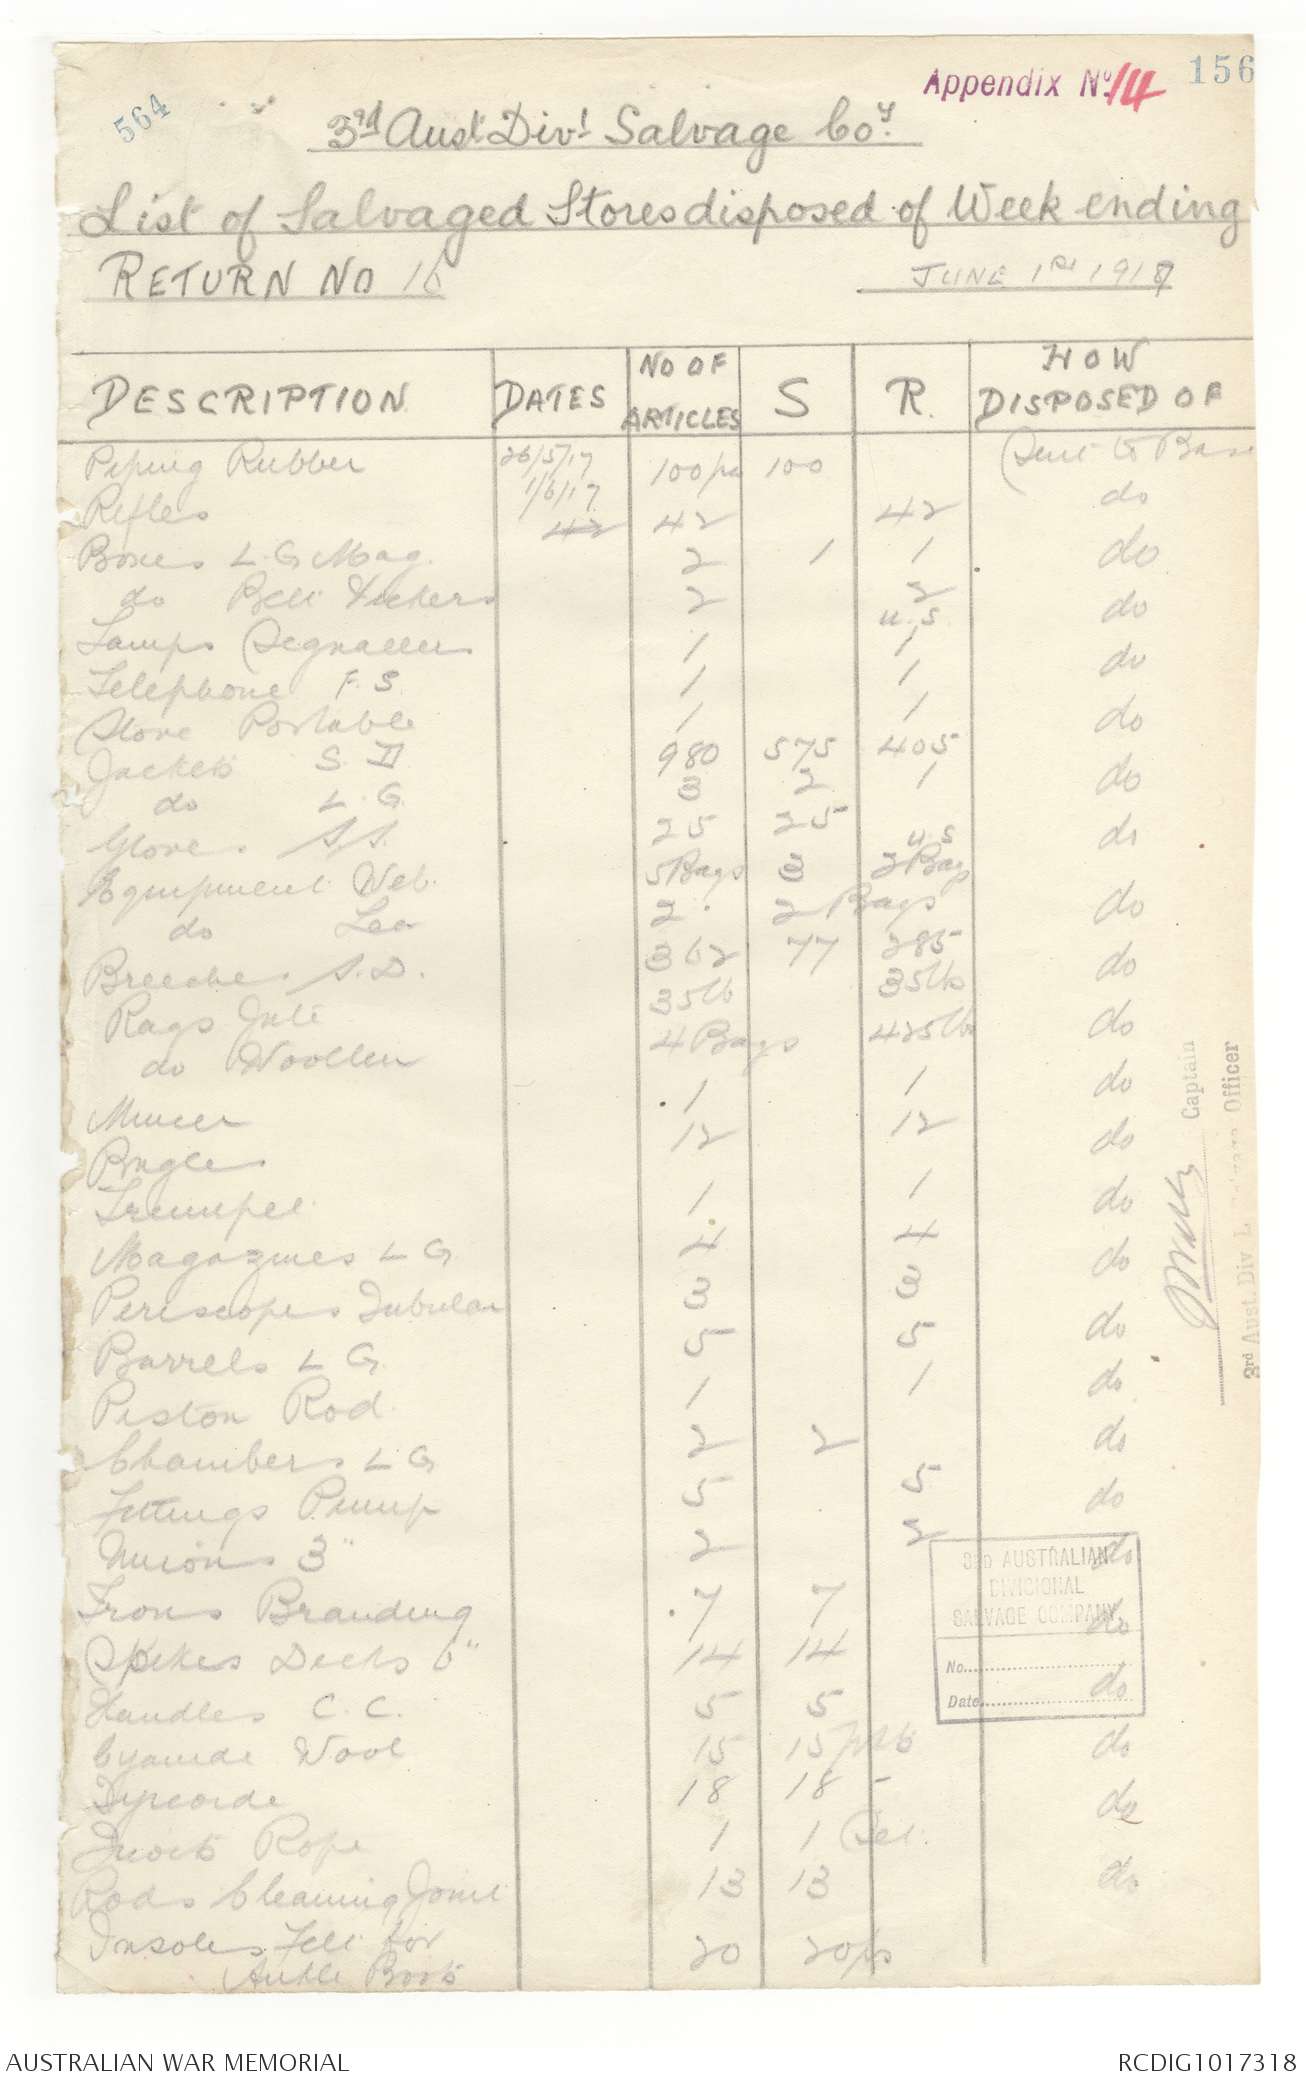 564
Appendix No 14
156
3rd Aust Divl Salvage Coy.
List of Salvaged Stores disposed of Week ending
RETURN NO 16
JUNE 1st 1917
DESCRIPTION DATES NO OF ARTICLES S R. HOW DISPOSED OF
Piping Rubber 26/5/17 100 100 Sent to Base
1/6/17
Rifles 42 42 42 do
Boxes L.G. Mag. 2 1 1 do
do Belt Vickers 2 2 do
u.s.
Lamps Signallers 1 1 do
Telephone F.S. 1 1 do
Stove Portable 1 1 do
Jackets S D 980 575 405 do
do L.G. 3 2 1 do
Gloves S.S. 25 25
u s
Equipment Web. 5 Bags 3 2 Bags do
do Lea 2 2 Bags do
Breeches S.D. 362 77 285 do
Rags Jute 35lb 35lbs do
do Woollen 4 Bags 425lbs do
Mincer 1 1 do
Bugles 12 12 do
Trumpet 1 1 do
Magazines L G. 4 4 do
Periscopes Tubular 3 3 do
Barrels L G. 5 5 do
Piston Rod 1 1 do
Chambers L G 2 2 do
Fittings Pump 5 5 do
Unions 3" 2 2 do
Irons Branding 7 7 do
Spikes Decks 6" 14 14 do
Handles C.C. 5 5 do
Cyanide Wool 15 15 do
18 18 - do
Rope 1 1 Set. do
Rods Cleaning Joint 13 13
Insoles Felt for 20 20prs
Ankle Boots
Captain
3rd Aust. Div L. Salvage Officer
3RD AUSTRALIAN
DIVISIONAL
SALVAGE COMPANY
No.
Date
AUSTRALIAN WAR MEMORIAL
RCDIG1017318